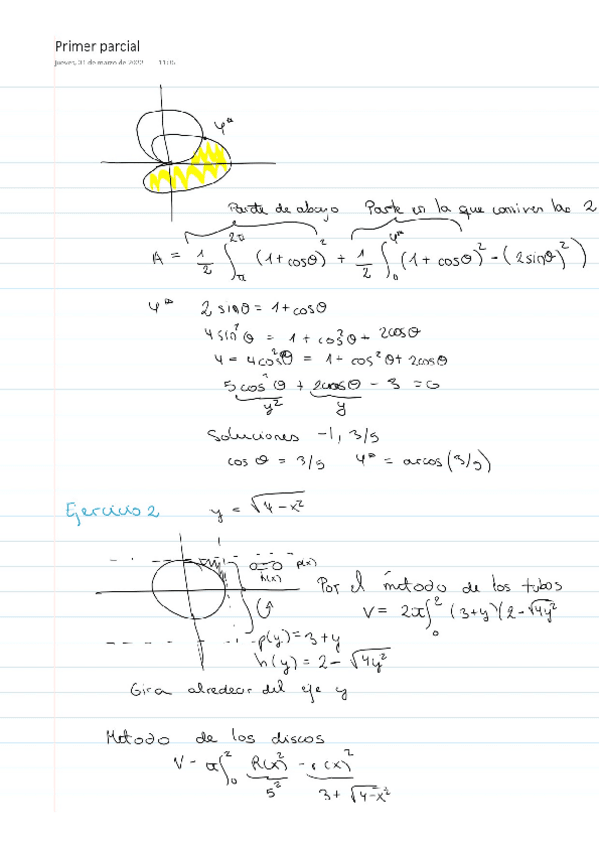 Primer parcial
jueves, 31 de marzo de 2022 11:05
φ*
Parte de abajo Parte en la que conviven las 2
A = 1/2 ∫_π^{2π} (1+cosθ)^2 + 1/2 ∫_0^{φ*} (1+cosθ)^2 - (2sinθ)^2)
φ* 2 sinθ = 1+cosθ
4 sin^2 θ = 1 + cos^2 θ + 2cosθ
4 - 4cos^2 θ = 1 + cos^2 θ + 2cosθ
5 cos^2 θ + 2cosθ - 3 = 0
y^2 y
Soluciones -1, 3/5
cos θ = 3/5 φ* = arcos (3/5)
Ejercicio 2 y = √4-x^2
p(x)
h(x)
Por el metodo de los tubos
V = 2π ∫_0^2 (3+y)(2-√4y^2
p(y) = 3+y
h(y) = 2 - √4y^2
Gira alrededor del eje y
Metodo de los discos
V - π ∫_0^2 R(x)^2 - r(x)^2
5^2 3 + √4-x^2